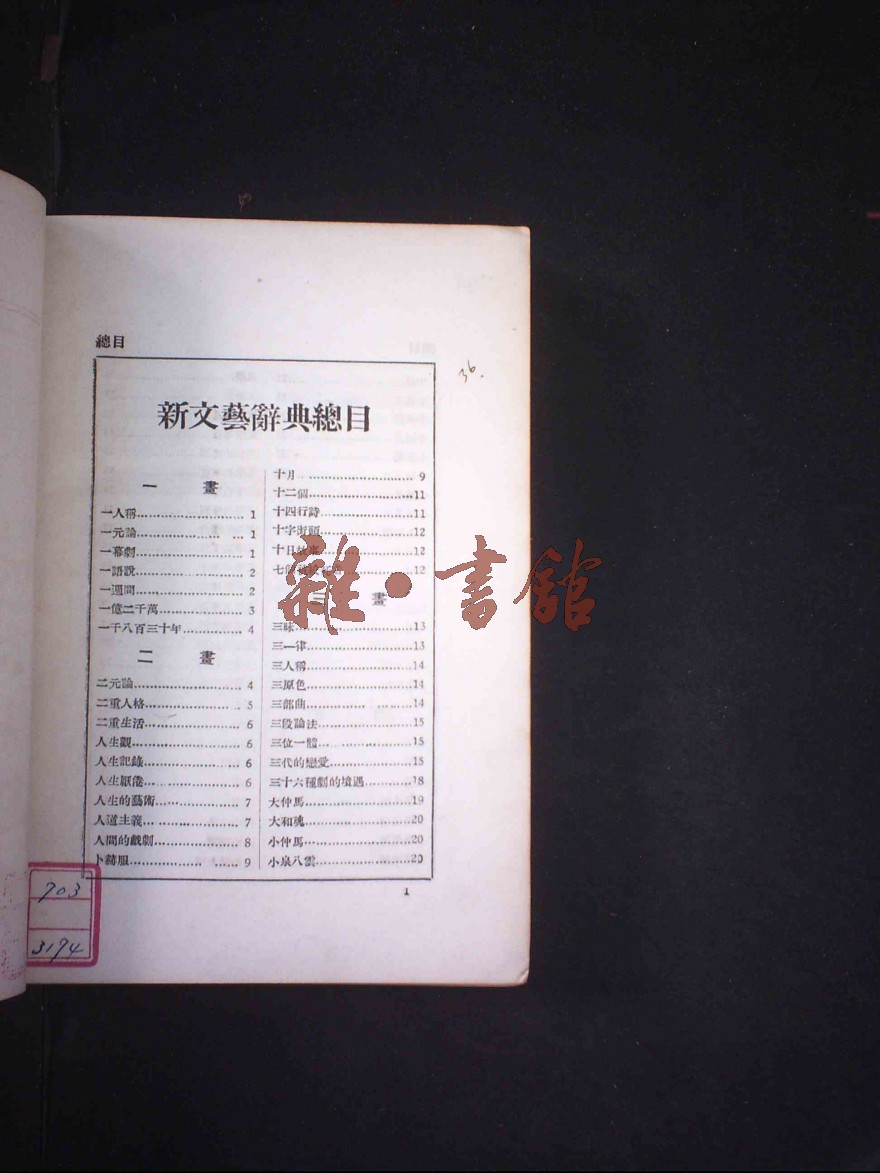 總目
36.
新文藝辭典總目
一 畫
一人稱 1
一元論 1
一幕劇 1
一語說 2
一週間 2
一億二千萬 3
一千八百三十年 4
二 畫
二元論 4
二重人格 5
二重生活 6
人生觀 6
人生記錄 6
人生厭倦 6
人生的藝術 7
人道主義 7
人間的戲劇 8
卜藹服 9
十月 9
十二個 11
十四行詩 11
十字街頭 12
十日故事 12
七個 12
三 畫
三昧 13
三一律 13
三人稱 14
三原色 14
三部曲 14
三段論法 15
三位一體 15
三代的戀愛 15
三十六種劇的境遇 18
大仲馬 19
大和魂 20
小仲馬 20
小泉八雲 20
1
703
3194
雜·書館